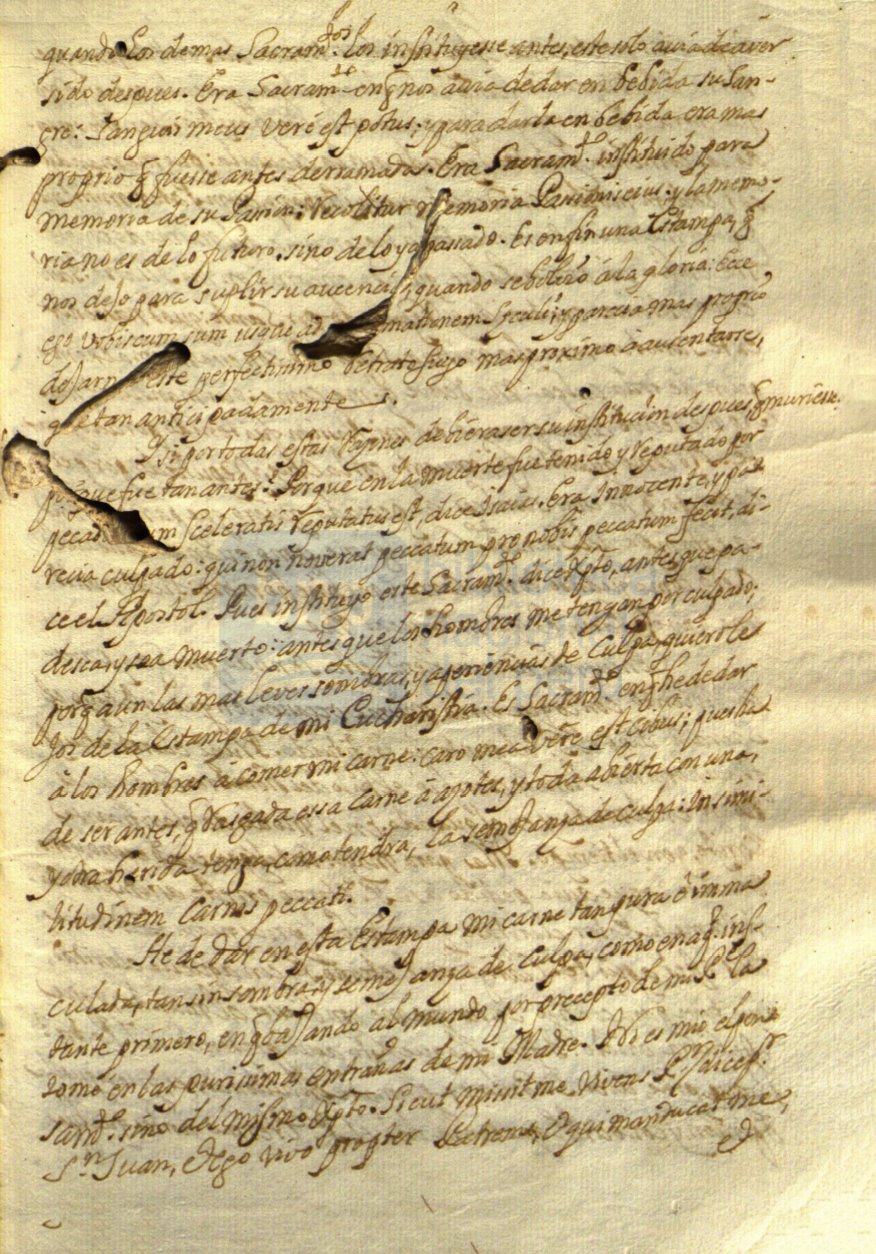 quando los demas Sacram.tos los instituyesse antes, este solo auia de auer
sido despues. Era Sacram.to en q̃ nos auia de dar en bebida su San-
gre: Sanguis meus verè est potus; y para darla en bebida era mas
proprio q̃ fuesse antes derramada. Era Sacram.to instituido para
memoria de su Passion: recolitur memoria Passionis eius: y la memo-
ria no es de lo futuro, sino de lo ya passado. Es en fin una Estampa, q̃
nos dejo para suplir su aucencia, quando se boluio á la gloria: Ecce
ego vobiscum sum usque ad mationem Sęculi; y parecia mas proprio
dejarn este perfectissimo Retrato suyo mas proximo à ausentarse,
que tan anticipadamente.
Y si por todas estas razones debiera ser su institucion despues q̃ muriesse.
porque fue tan antes? Porque en la muerte fue tenido y reputado por
pecad um Sceleratis reputatus est, dice Isaias. Era Innocente, y pa-
recia culpado: qui non noverat peccatum pro nobis peccatum fecit, di-
ce el Apostol. Pues instituyo este Sacram.to dice Xpto, antes que pa-
desca, y sea muerto: antes que los hombres me tengan por culpado;
porq̃ aun las mas leves sombras, y aperiencias de Culpa, quiero le-
jos de la Estampa de mi Eucharistia. Es Sacram.to en q̃ he de dar
à los hombres à comer mi carne: caro mea verè est cibus; pues ha
de ser antes, q̃ rasgada essa carne à azotes, y toda abierta con una,
y otra herida tenga, como tendra, la semejanza de culpa: In simi-
litudinem Carnis peccati.
He de dar en esta Estampa mi carne tan pura è imma
culada, tan sin sombra, y semejanza de culpa, como en aq.l ins-
tante primero, en q̃ bajando al mundo por precepto de mi P.e la
tomè en las purissimas entrañas de mi Madre. Ni es mio el pen-
sam.to sino del mismo Xpto. Sicut missit me vivens P.r, dice p.r
S.n Juan, et ego vivo propter Patrem, et qui manducat me,
et